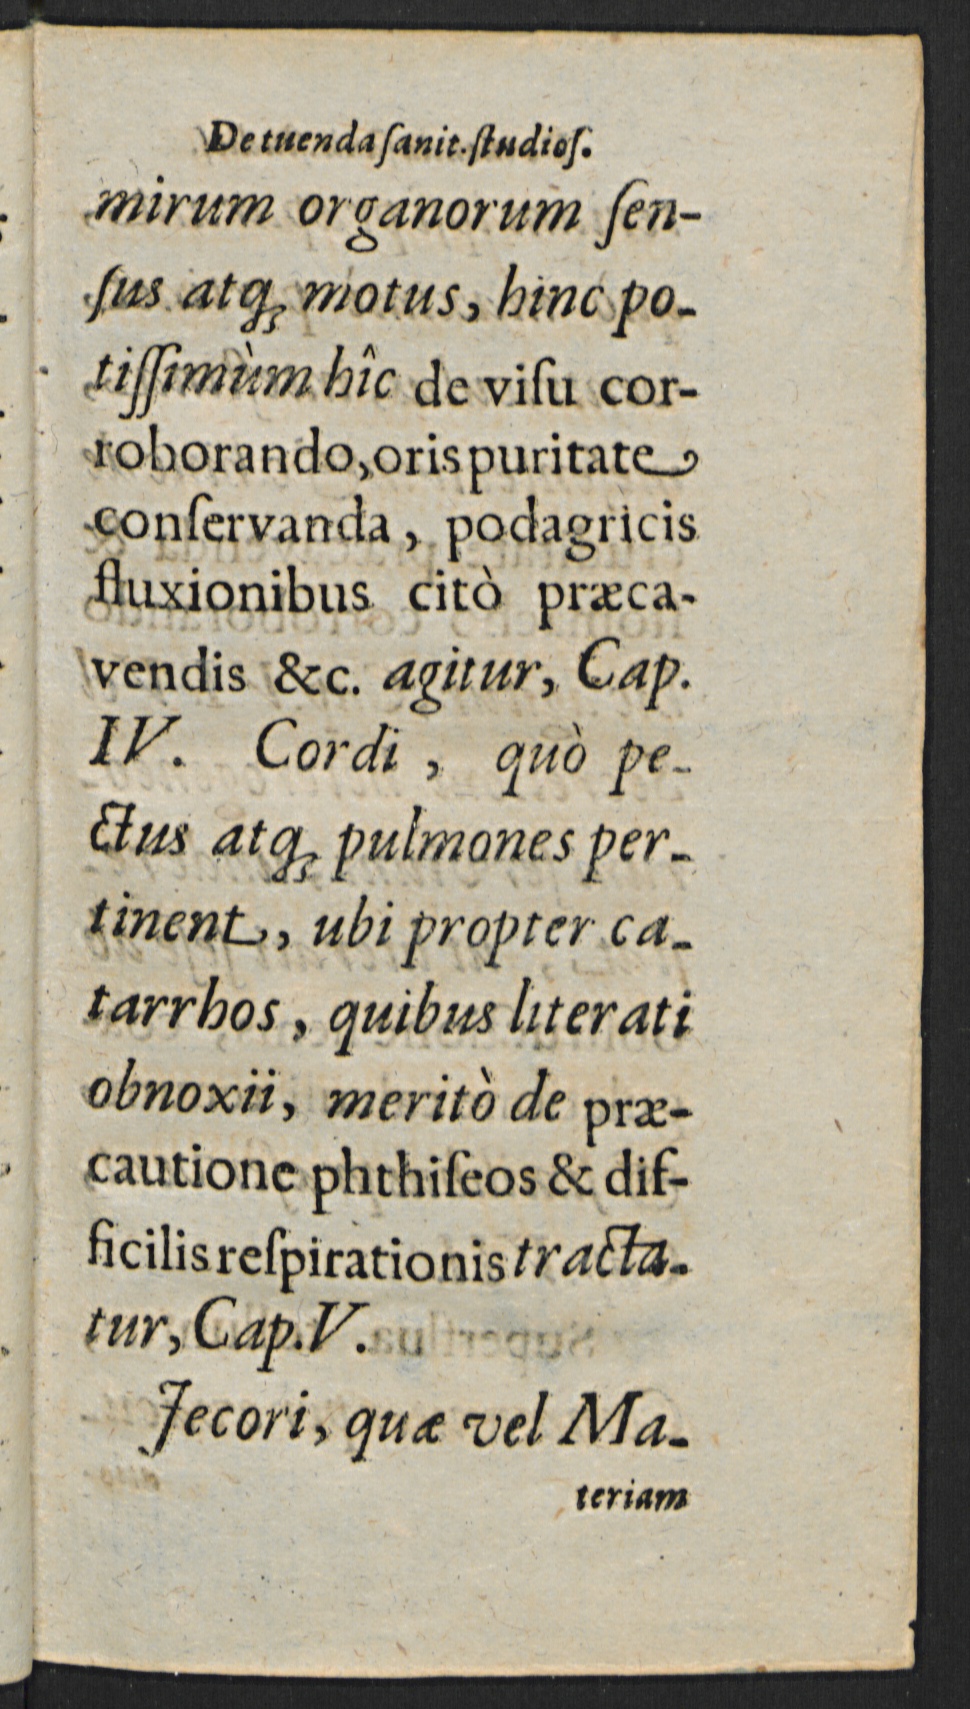 De tuenda ſanit. ſtudioſ.
mirum organorum ſen-
ſus atq; motus, hinc po-
tiſſimùm hîc de viſu cor-
roborando, oris puritate
conſervanda, podagricis
fluxionibus citò præca-
vendis &c. agitur, Cap.
IV. Cordi, quò pe-
ctus atq; pulmones per-
tinent, ubi propter ca-
tarrhos, quibus literati
obnoxii, meritò de præ-
cautione phthiſeos & dif-
ficilis reſpirationis tracta-
tur, Cap. V.
Jecori, quæ vel Ma-
teriam